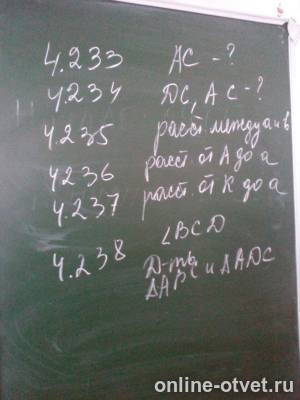 4.233 AC - ?
4.234 DC, AC - ?
4.235 расст. между a и в
4.236 расст. от A до a
4.237 расст. от K до a
4.238 ∠BCD
Д-ть
ΔABC и ΔADC
online-otvet.ru